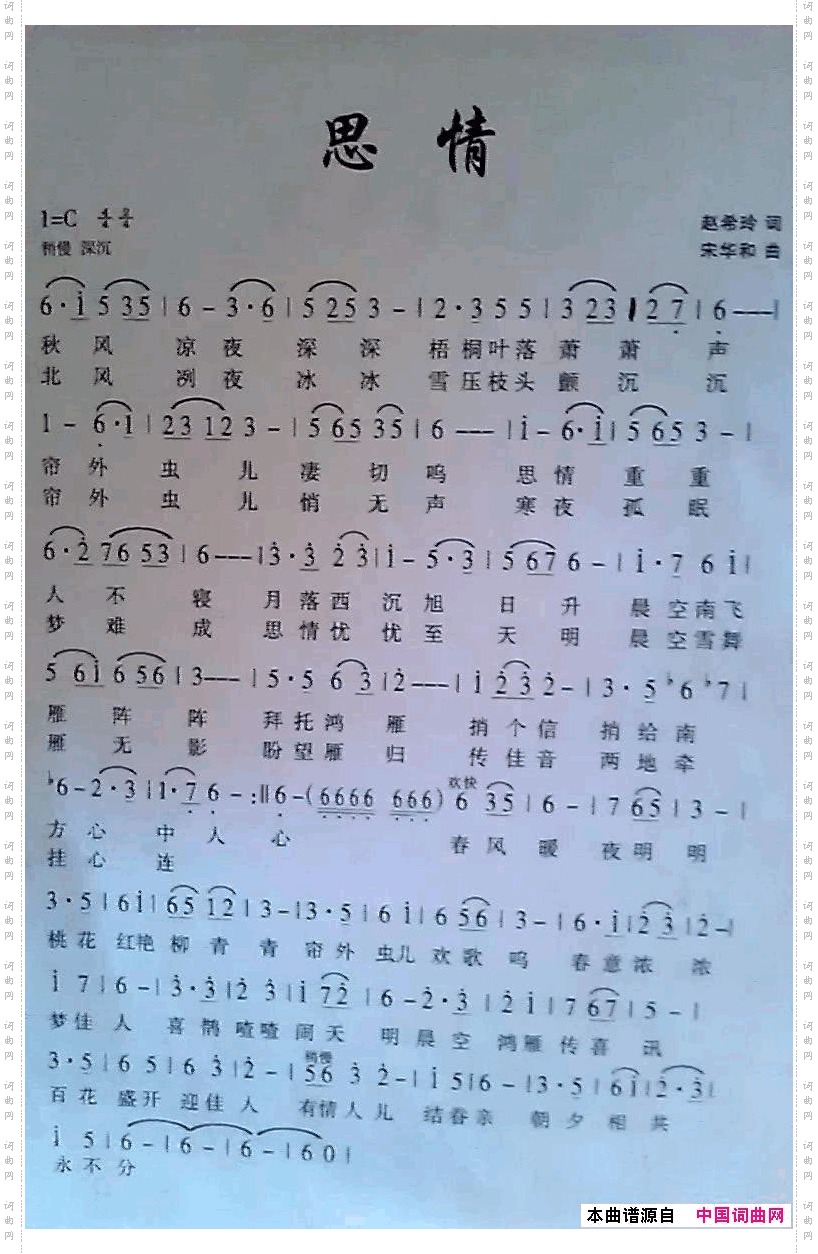 思情
1=C 4/4 2/4
赵希玲 词
稍慢 深沉
宋华和 曲
6·i 5 35 | 6 - 3·6 | 5 25 3 - | 2·3 5 5 | 3 23 | 2 7 | 6 --- |
秋风 凉夜 深深 梧桐叶落萧萧声
北风 冽夜 冰冰 雪压枝头颤沉沉
1 - 6·1 | 23 12 3 - | 5 65 35 | 6 --- | i - 6·i | 5 65 3 - |
帘外虫儿凄切鸣思情重重
帘外虫儿悄无声寒夜孤眠
6·2 76 53 | 6 --- | 3·3 2 3 | i - 5·3 | 5 67 6 - | i·7 6 i |
人不寝月落西沉旭日升晨空南飞
梦难成思情忧忧至天明晨空雪舞
5 6i 656 | 3 --- | 5·5 6 3 | 2 --- | i 23 2 - | 3·5 ♭6 ♭7 |
雁阵阵拜托鸿雁捎个信捎给南
雁无影盼望雁归传佳音两地牵
♭6 - 2·3 | 1·7 6 - :‖ 6 - (6666 666) 欢快 6 35 | 6 - | 7 65 | 3 - |
方心中人心 春风暖夜明明
挂心连
3·5 | 6 i | 65 12 | 3 - | 3·5 | 6 i | 6 56 | 3 - | 6·i | 2 3 | 2 - |
桃花红艳柳青青帘外虫儿欢歌鸣春意浓浓
i 7 | 6 - | 3·3 | 2 3 | i 72 | 6 - 2·3 | 2 i | 7 67 | 5 - |
梦佳人喜鹊喳喳闹天明晨空鸿雁传喜讯
稍慢
3·5 | 6 5 | 6 3 | 2 - | 56 3 2 - | i 5 | 6 - | 3·5 | 6i | 2·3 |
百花盛开迎佳人有情人儿结眷亲朝夕相共
i 5 | 6 - | 6 - | 6 - | 6 0 |
永不分
本曲谱源自 中国词曲网
词曲网